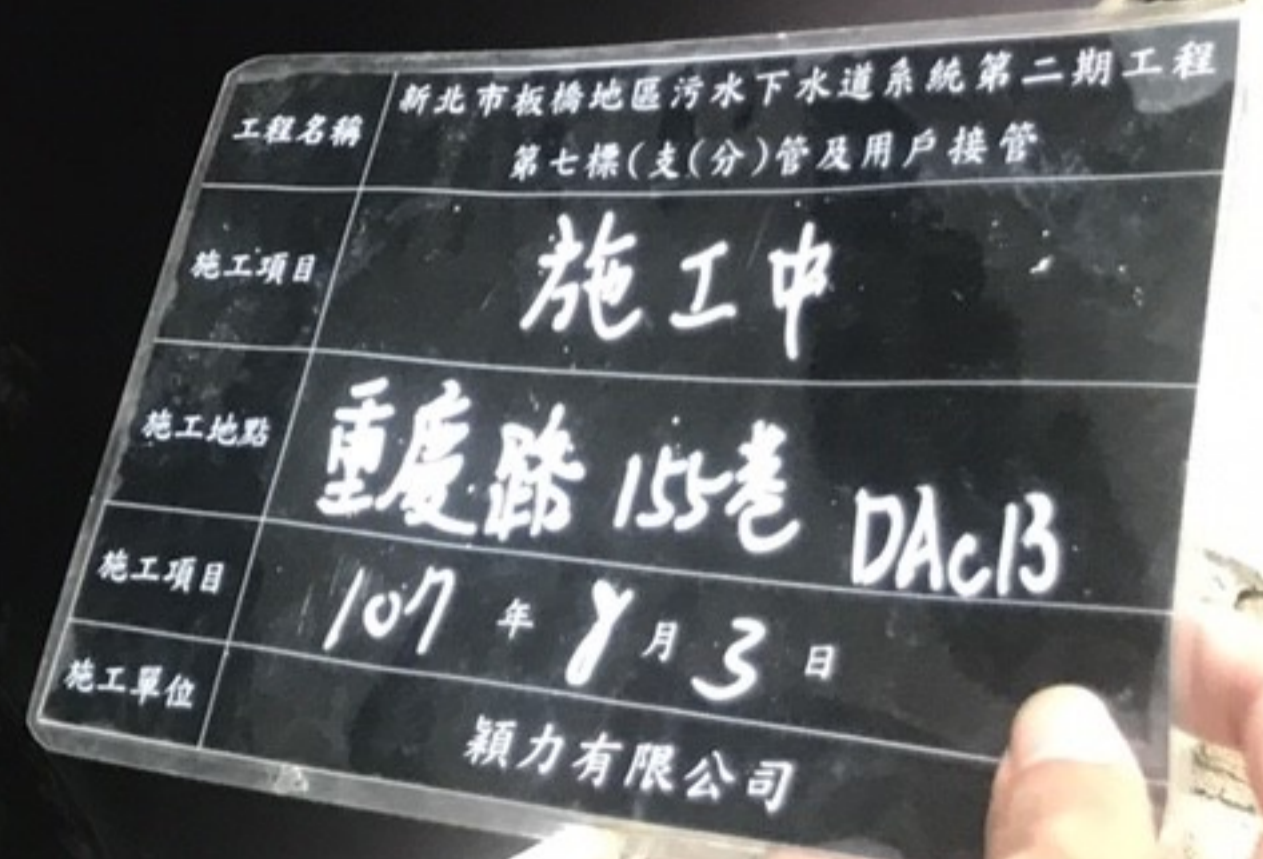 工程名稱 新北市板橋地區污水下水道系統第二期工程
第七標(支(分)管及用戶接管
施工項目 施工中
施工地點 重慶路 155巷 DAC13
施工項目 107 年 8 月 3 日
施工單位 穎力有限公司